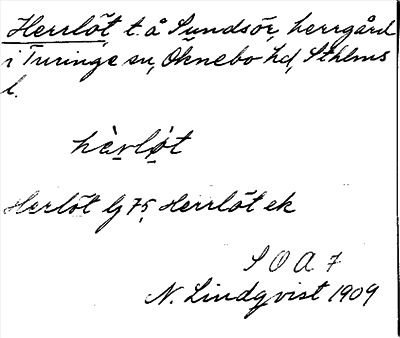 Herrlöt t. å Sundsör, herrgård
i Turinge sn, Öknebo hd, Sthlms
l.
hèrlö̀t
Herlöt lj 75, Herrlöt ek
S O A 7
N. Lindqvist 1909